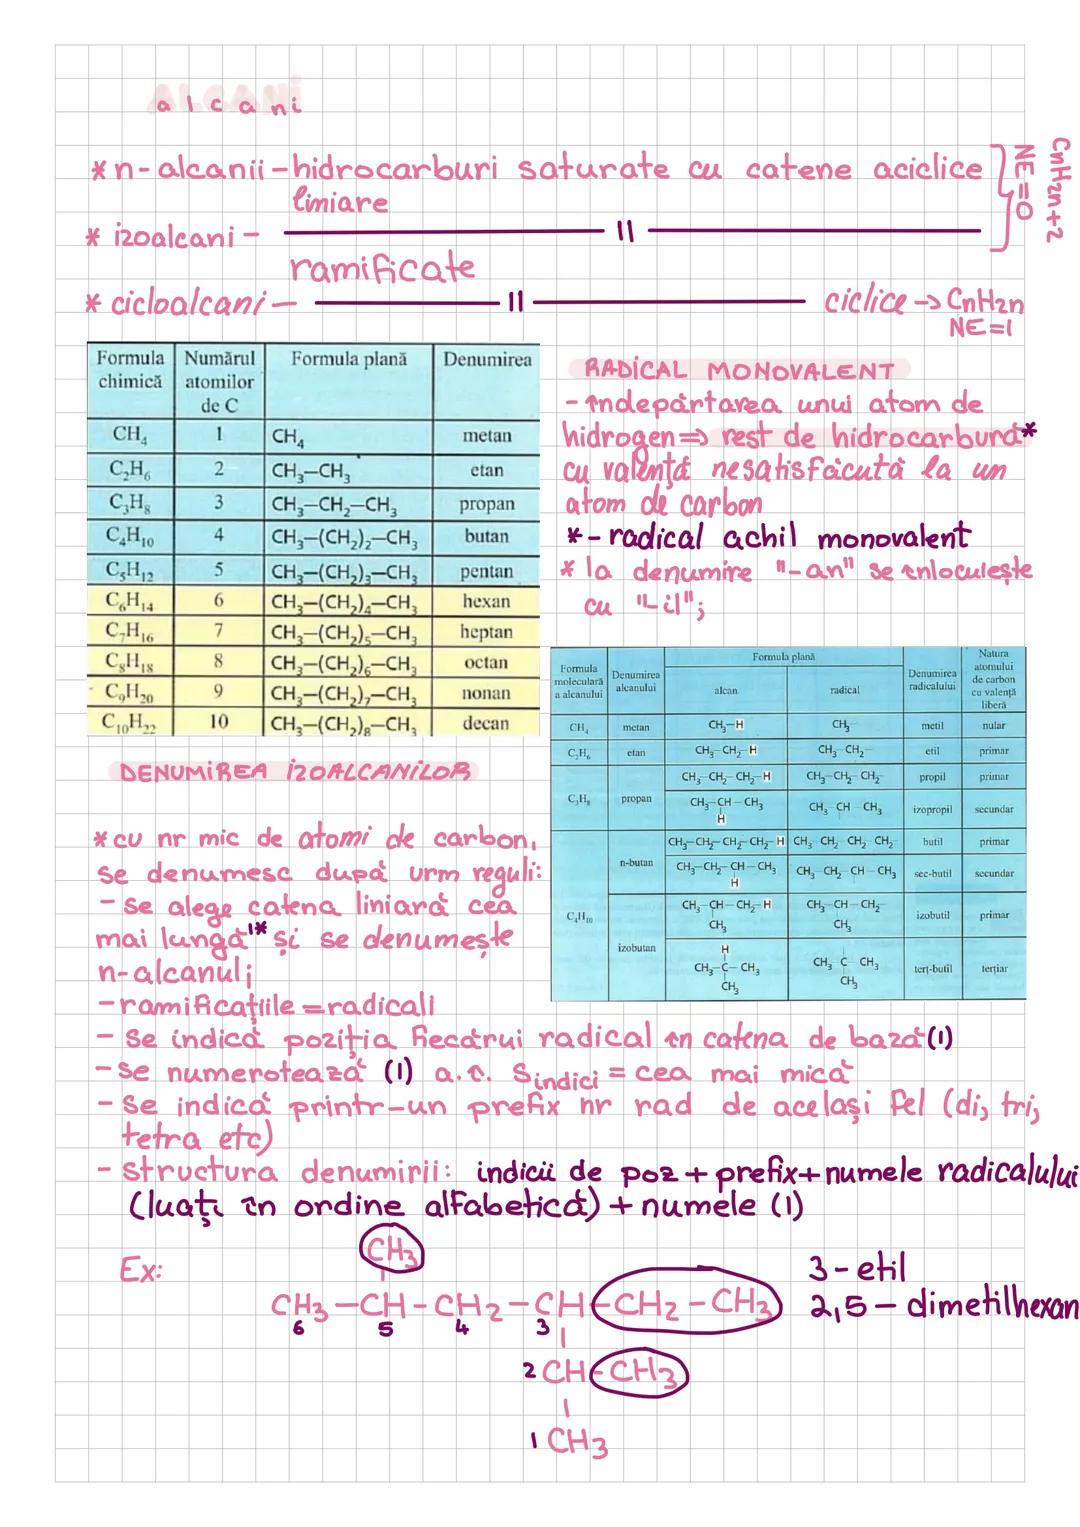 alcani
* n-alcanii - hidrocarburi saturate cu catene aciclice
limiare
CnH2n+2
NE=0
* izoalcani - —— 11 ——
ramificate
* cicloalcani - —— 11 —— ciclice → CnH2n
NE=1
Formula chimică | Numărul atomilor de C | Formula plană | Denumirea
CH4 | 1 | CH4 | metan
C2H6 | 2 | CH3—CH3 | etan
C3H8 | 3 | CH3—CH2—CH3 | propan
C4H10 | 4 | CH3—(CH2)2—CH3 | butan
C5H12 | 5 | CH3—(CH2)3—CH3 | pentan
C6H14 | 6 | CH3—(CH2)4—CH3 | hexan
C7H16 | 7 | CH3—(CH2)5—CH3 | heptan
C8H18 | 8 | CH3—(CH2)6—CH3 | octan
C9H20 | 9 | CH3—(CH2)7—CH3 | nonan
C10H22 | 10 | CH3—(CH2)8—CH3 | decan
RADICAL MONOVALENT
- îndepărtarea unui atom de
hidrogen => rest de hidrocarbură*
cu valență nesatisfăcută la un
atom de carbon
* - radical achil monovalent
* la denumire "-an" se înloculește
cu "-il";
Formula moleculară a alcanului | Denumirea alcanului | Formula plană | Denumirea radicalului | Natura atomului de carbon cu valență liberă
alcan | radical
CH4 | metan | CH3—H | CH3— | metil | nular
C2H6 | etan | CH3—CH2—H | CH3—CH2— | etil | primar
C3H8 | propan | CH3—CH2—CH2—H | CH3—CH2—CH2— | propil | primar
CH3—CH—CH3 | CH3 CH CH3 | izopropil | secundar
H
C4H10 | n-butan | CH3—CH2—CH2—CH2—H | CH3 CH2 CH2 CH2 | butil | primar
CH3—CH2—CH—CH3 | CH3 CH2 CH—CH3 | sec-butil | secundar
H
izobutan | CH3—CH—CH2—H | CH3—CH—CH2— | izobutil | primar
CH3 | CH3
H
CH3—C—CH3 | CH3 C CH3 | terț-butil | terțiar
CH3 | CH3
DENUMIREA IZOALCANILOR
* cu nr mic de atomi de carbon,
se denumesc după urm reguli:
- se alege catena liniară cea
mai lungă1* și se denumește
n-alcanul;
- ramificațiile = radicali
- se indică poziția fiecărui radical în catena de bază (1)
- se numerotează (1) a.î. Sindici = cea mai mică
- se indică printr-un prefix nr rad de același fel (di, tri,
tetra etc)
- structura denumirii: indicii de poz + prefix + numele radicalului
(luați în ordine alfabetică) + numele (1)
Ex:
CH3
CH3—CH—CH2—CH—CH2—CH3
6 5 4 3
2 CH—CH3
1 CH3
3-etil
2,5-dimetilhexan